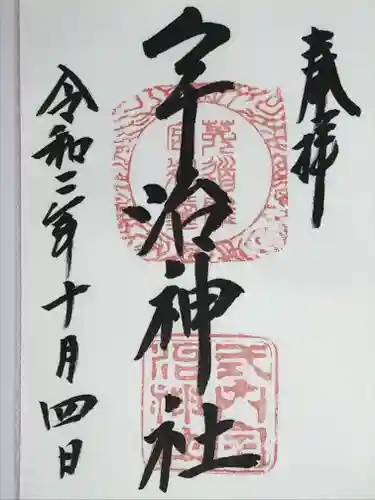 奉拝
宇治神社
令和二年十月四日
式内宇治神社